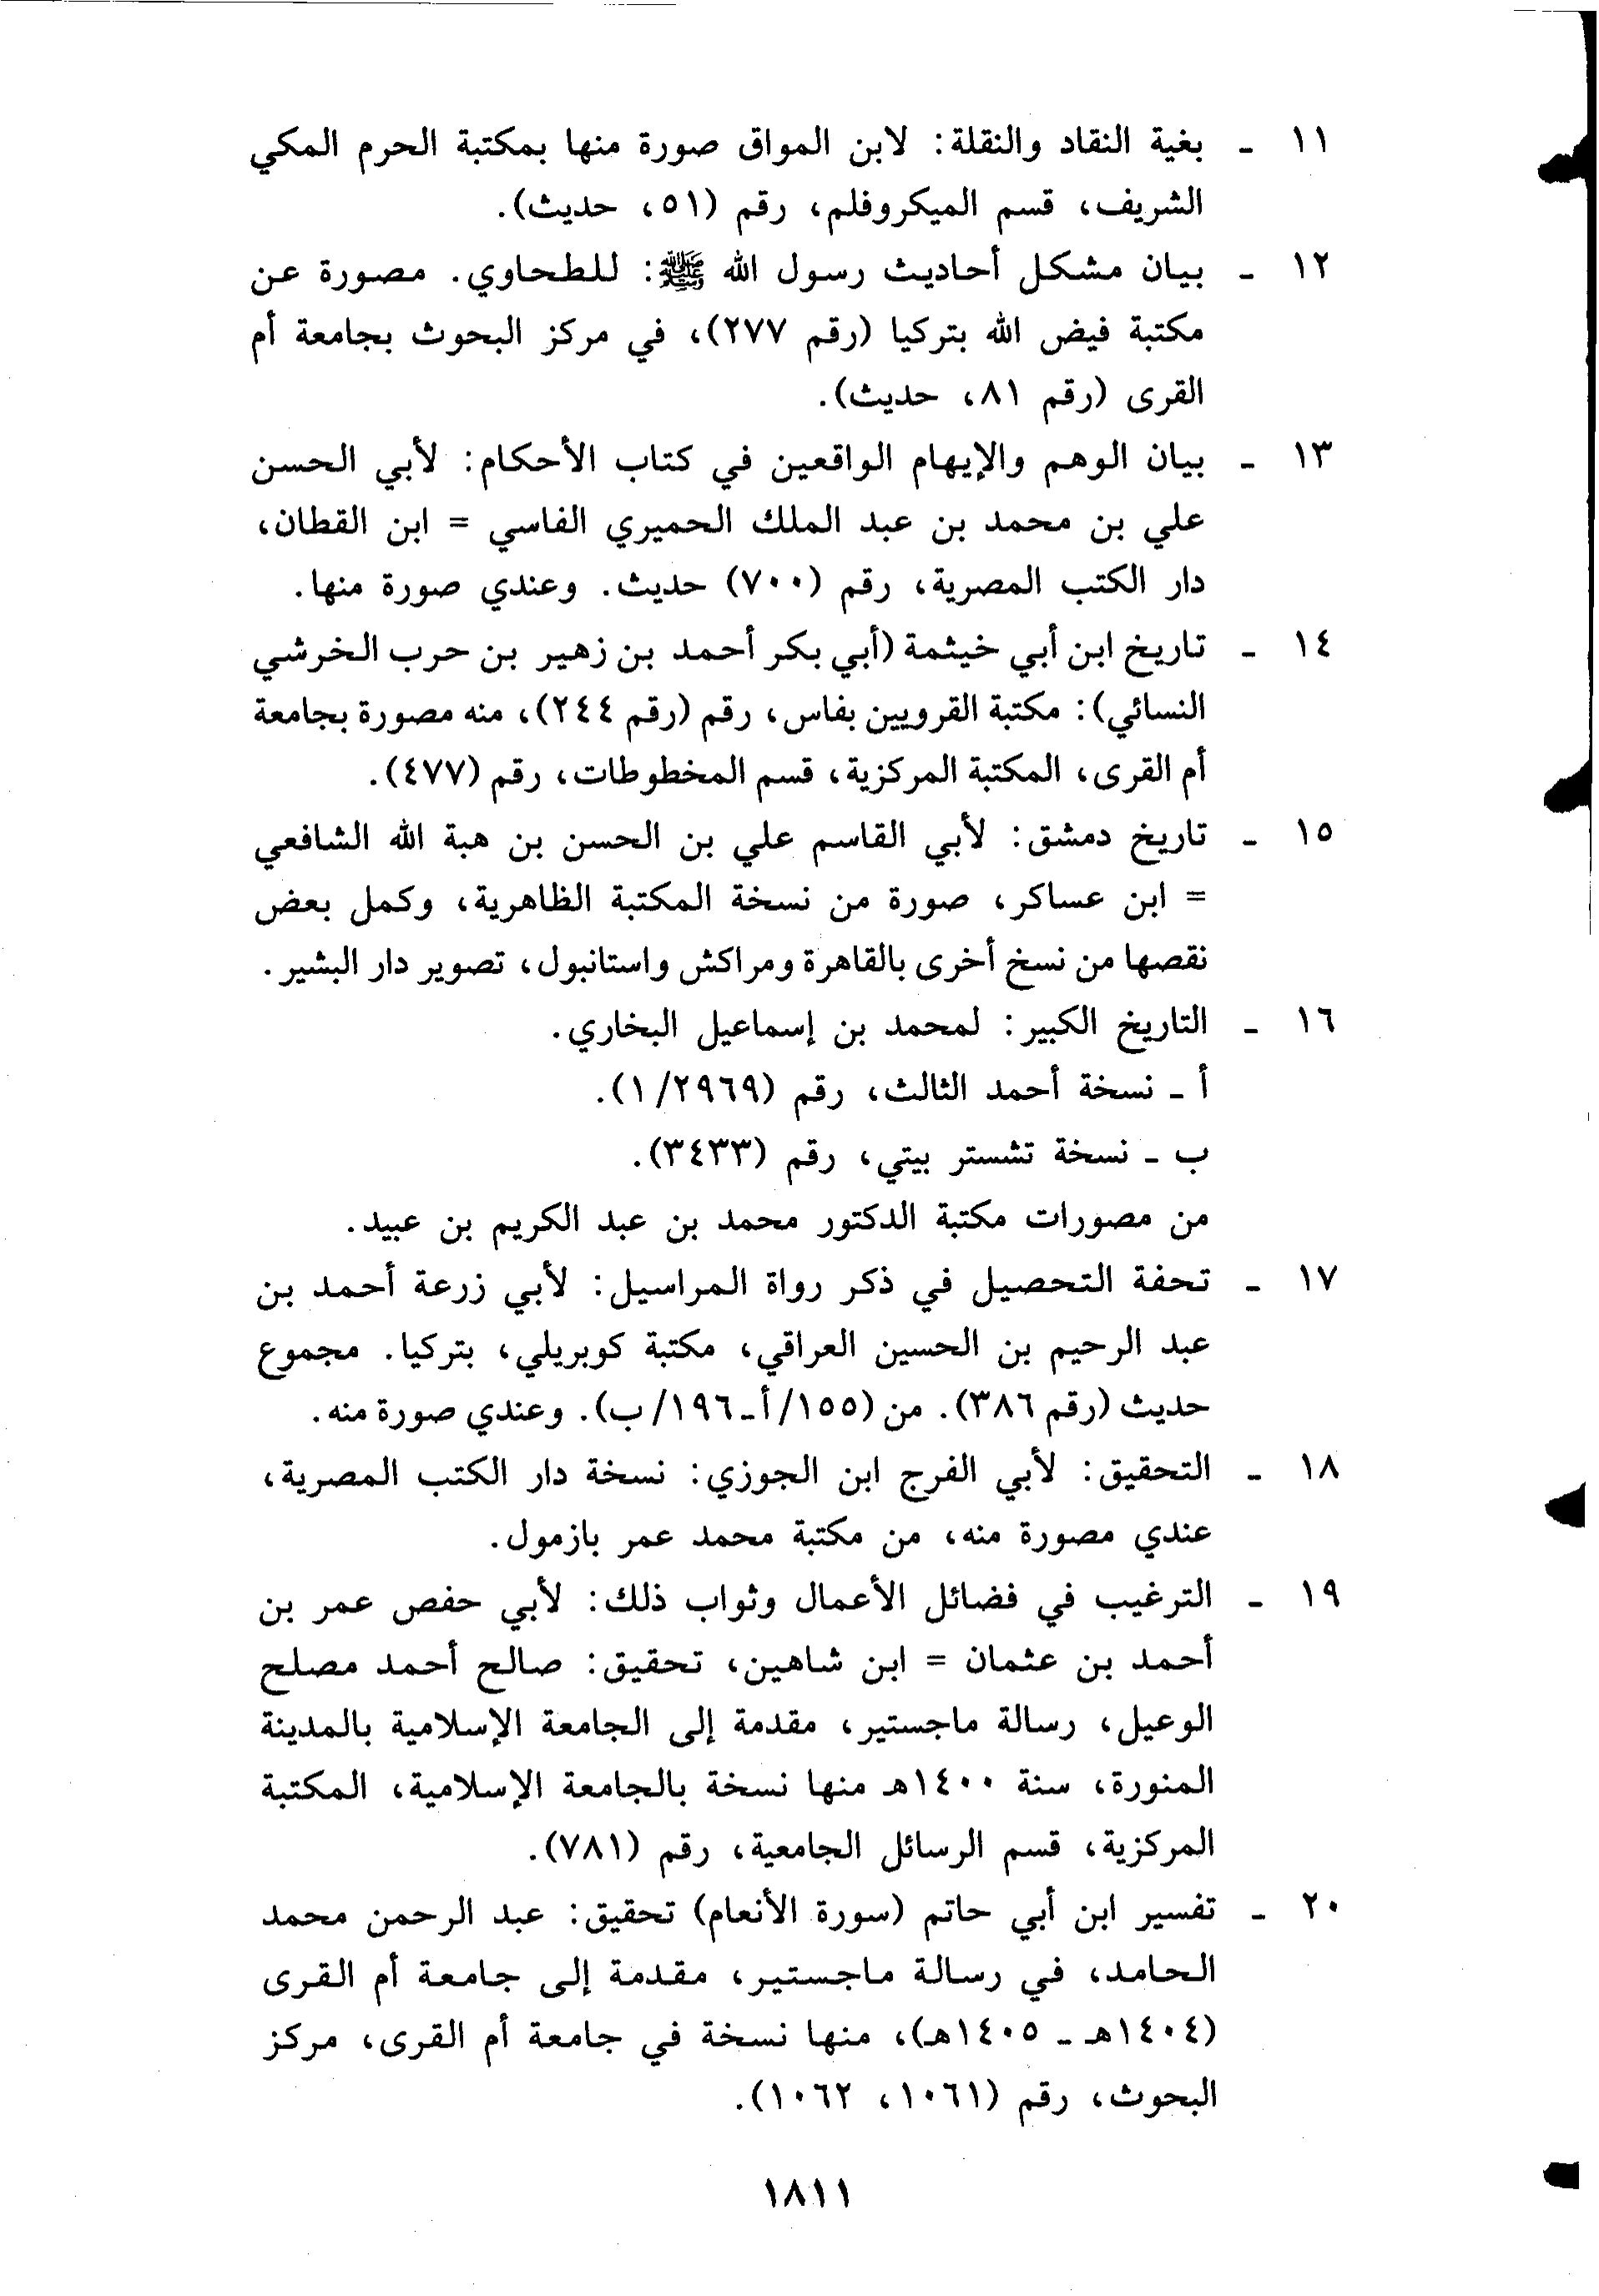 ١١ - بغية النقاد والنقلة: لابن المواق صورة منها بمكتبة الحرم المكي
الشريف، قسم الميكروفلم، رقم (٥١، حديث).
١٢ - بيان مشكل أحاديث رسول الله ﷺ: للطحاوي. مصورة عن
مكتبة فيض الله بتركيا (رقم ٢٧٧)، في مركز البحوث بجامعة أم
القرى (رقم ٨١، حديث).
١٣ - بيان الوهم والإيهام الواقعين في كتاب الأحكام: لأبي الحسن
علي بن محمد بن عبد الملك الحميري الفاسي = ابن القطان،
دار الكتب المصرية، رقم (٧٠٠) حديث. وعندي صورة منها.
١٤ - تاريخ ابن أبي خيثمة (أبي بكر أحمد بن زهير بن حرب الخرشي
النسائي): مكتبة القرويين بفاس، رقم (رقم ٢٤٤)، منه مصورة بجامعة
أم القرى، المكتبة المركزية، قسم المخطوطات، رقم (٤٧٧).
١٥ - تاريخ دمشق: لأبي القاسم علي بن الحسن بن هبة الله الشافعي
= ابن عساكر، صورة من نسخة المكتبة الظاهرية، وكمل بعض
نقصها من نسخ أخرى بالقاهرة ومراكش واستانبول، تصوير دار البشير.
١٦ - التاريخ الكبير: لمحمد بن إسماعيل البخاري.
أ - نسخة أحمد الثالث، رقم (١/٢٩٦٩).
ب - نسخة تشستر بيتي، رقم (٣٤٣٣).
من مصورات مكتبة الدكتور محمد بن عبد الكريم بن عبيد.
١٧ - تحفة التحصيل في ذكر رواة المراسيل: لأبي زرعة أحمد بن
عبد الرحيم بن الحسين العراقي، مكتبة كوبريلي، بتركيا. مجموع
حديث (رقم ٣٨٦). من (١٥٥/أ-١٩٦/ب). وعندي صورة منه.
١٨ - التحقيق: لأبي الفرج ابن الجوزي: نسخة دار الكتب المصرية،
عندي مصورة منه، من مكتبة محمد عمر بازمول.
١٩ - الترغيب في فضائل الأعمال وثواب ذلك: لأبي حفص عمر بن
أحمد بن عثمان = ابن شاهين، تحقيق: صالح أحمد مصلح
الوعيل، رسالة ماجستير، مقدمة إلى الجامعة الإسلامية بالمدينة
المنورة، سنة ١٤٠٠هـ منها نسخة بالجامعة الإسلامية، المكتبة
المركزية، قسم الرسائل الجامعية، رقم (٧٨١).
٢٠ - تفسير ابن أبي حاتم (سورة الأنعام) تحقيق: عبد الرحمن محمد
الحامد، في رسالة ماجستير، مقدمة إلى جامعة أم القرى
(١٤٠٤هـ - ١٤٠٥هـ)، منها نسخة في جامعة أم القرى، مركز
البحوث، رقم (١٠٦١، ١٠٦٢).
١٨١١